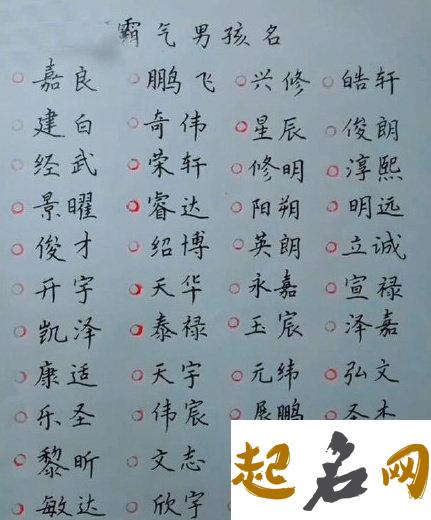 霸气男孩名
嘉良 鹏飞 兴修 皓轩
建白 奇伟 星辰 俊朗
经武 荣轩 修明 淳熙
景曜 睿达 阳朔 明远
俊才 绍博 英朗 立诚
开宇 天华 永嘉 宣禄
凯泽 泰禄 玉宸 泽嘉
康适 天宇 元纬 弘文
乐圣 伟宸 展鹏 圣杰
黎昕 文志
敏达 欣宇
起名网